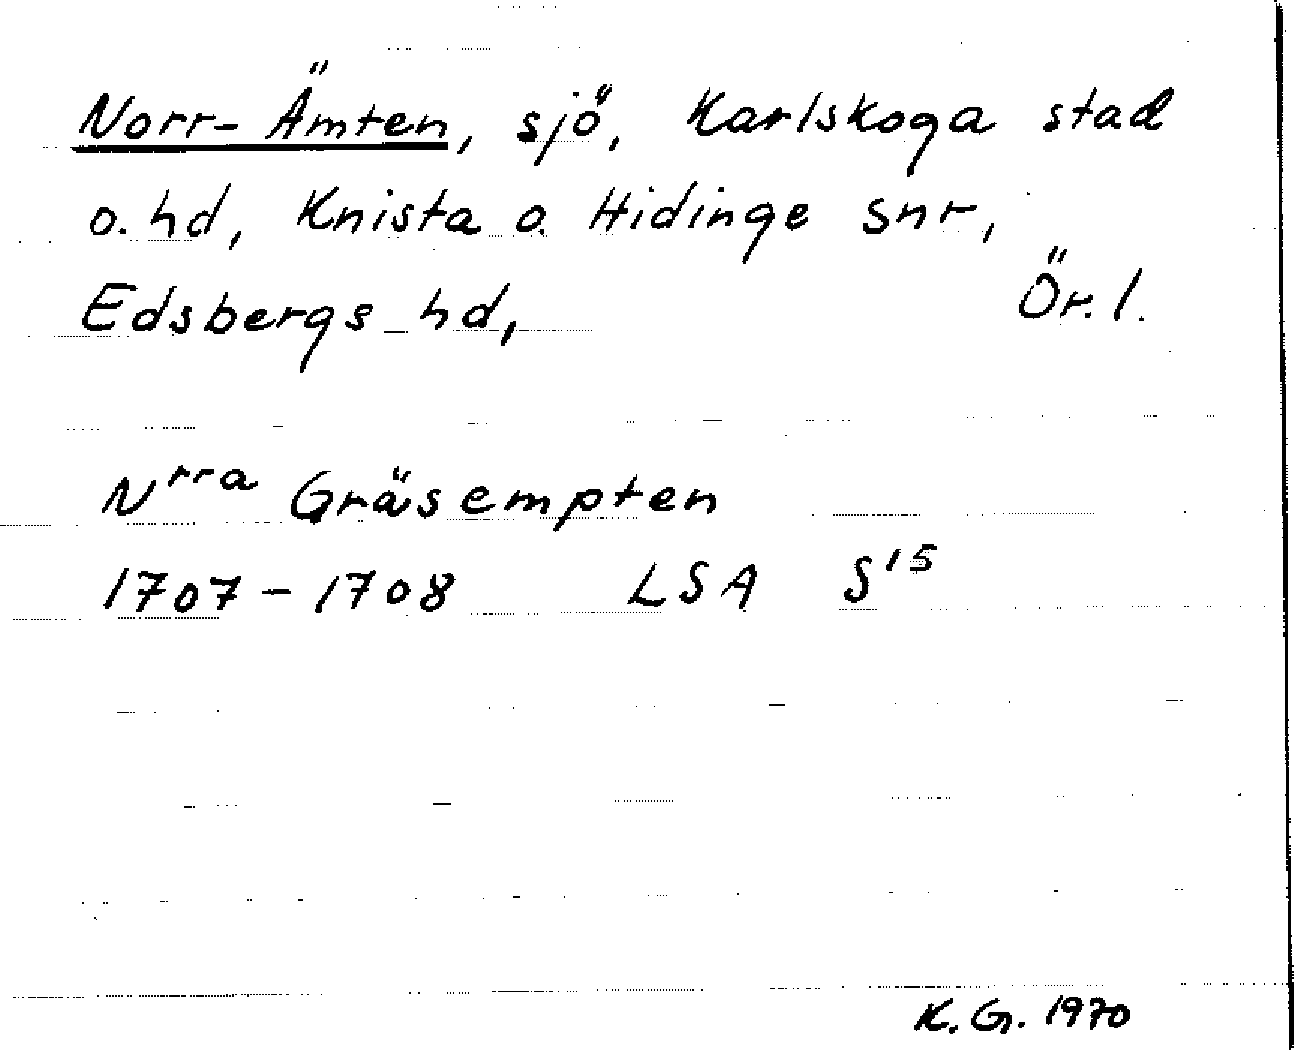 Norr-Ämten, sjö, Karlskoga stad
o. hd, Knista o. Hidinge snr,
Edsbergs hd, Ör. l.
Nrra Gräsempten
1707-1708 LSA S15
K. G. 1970